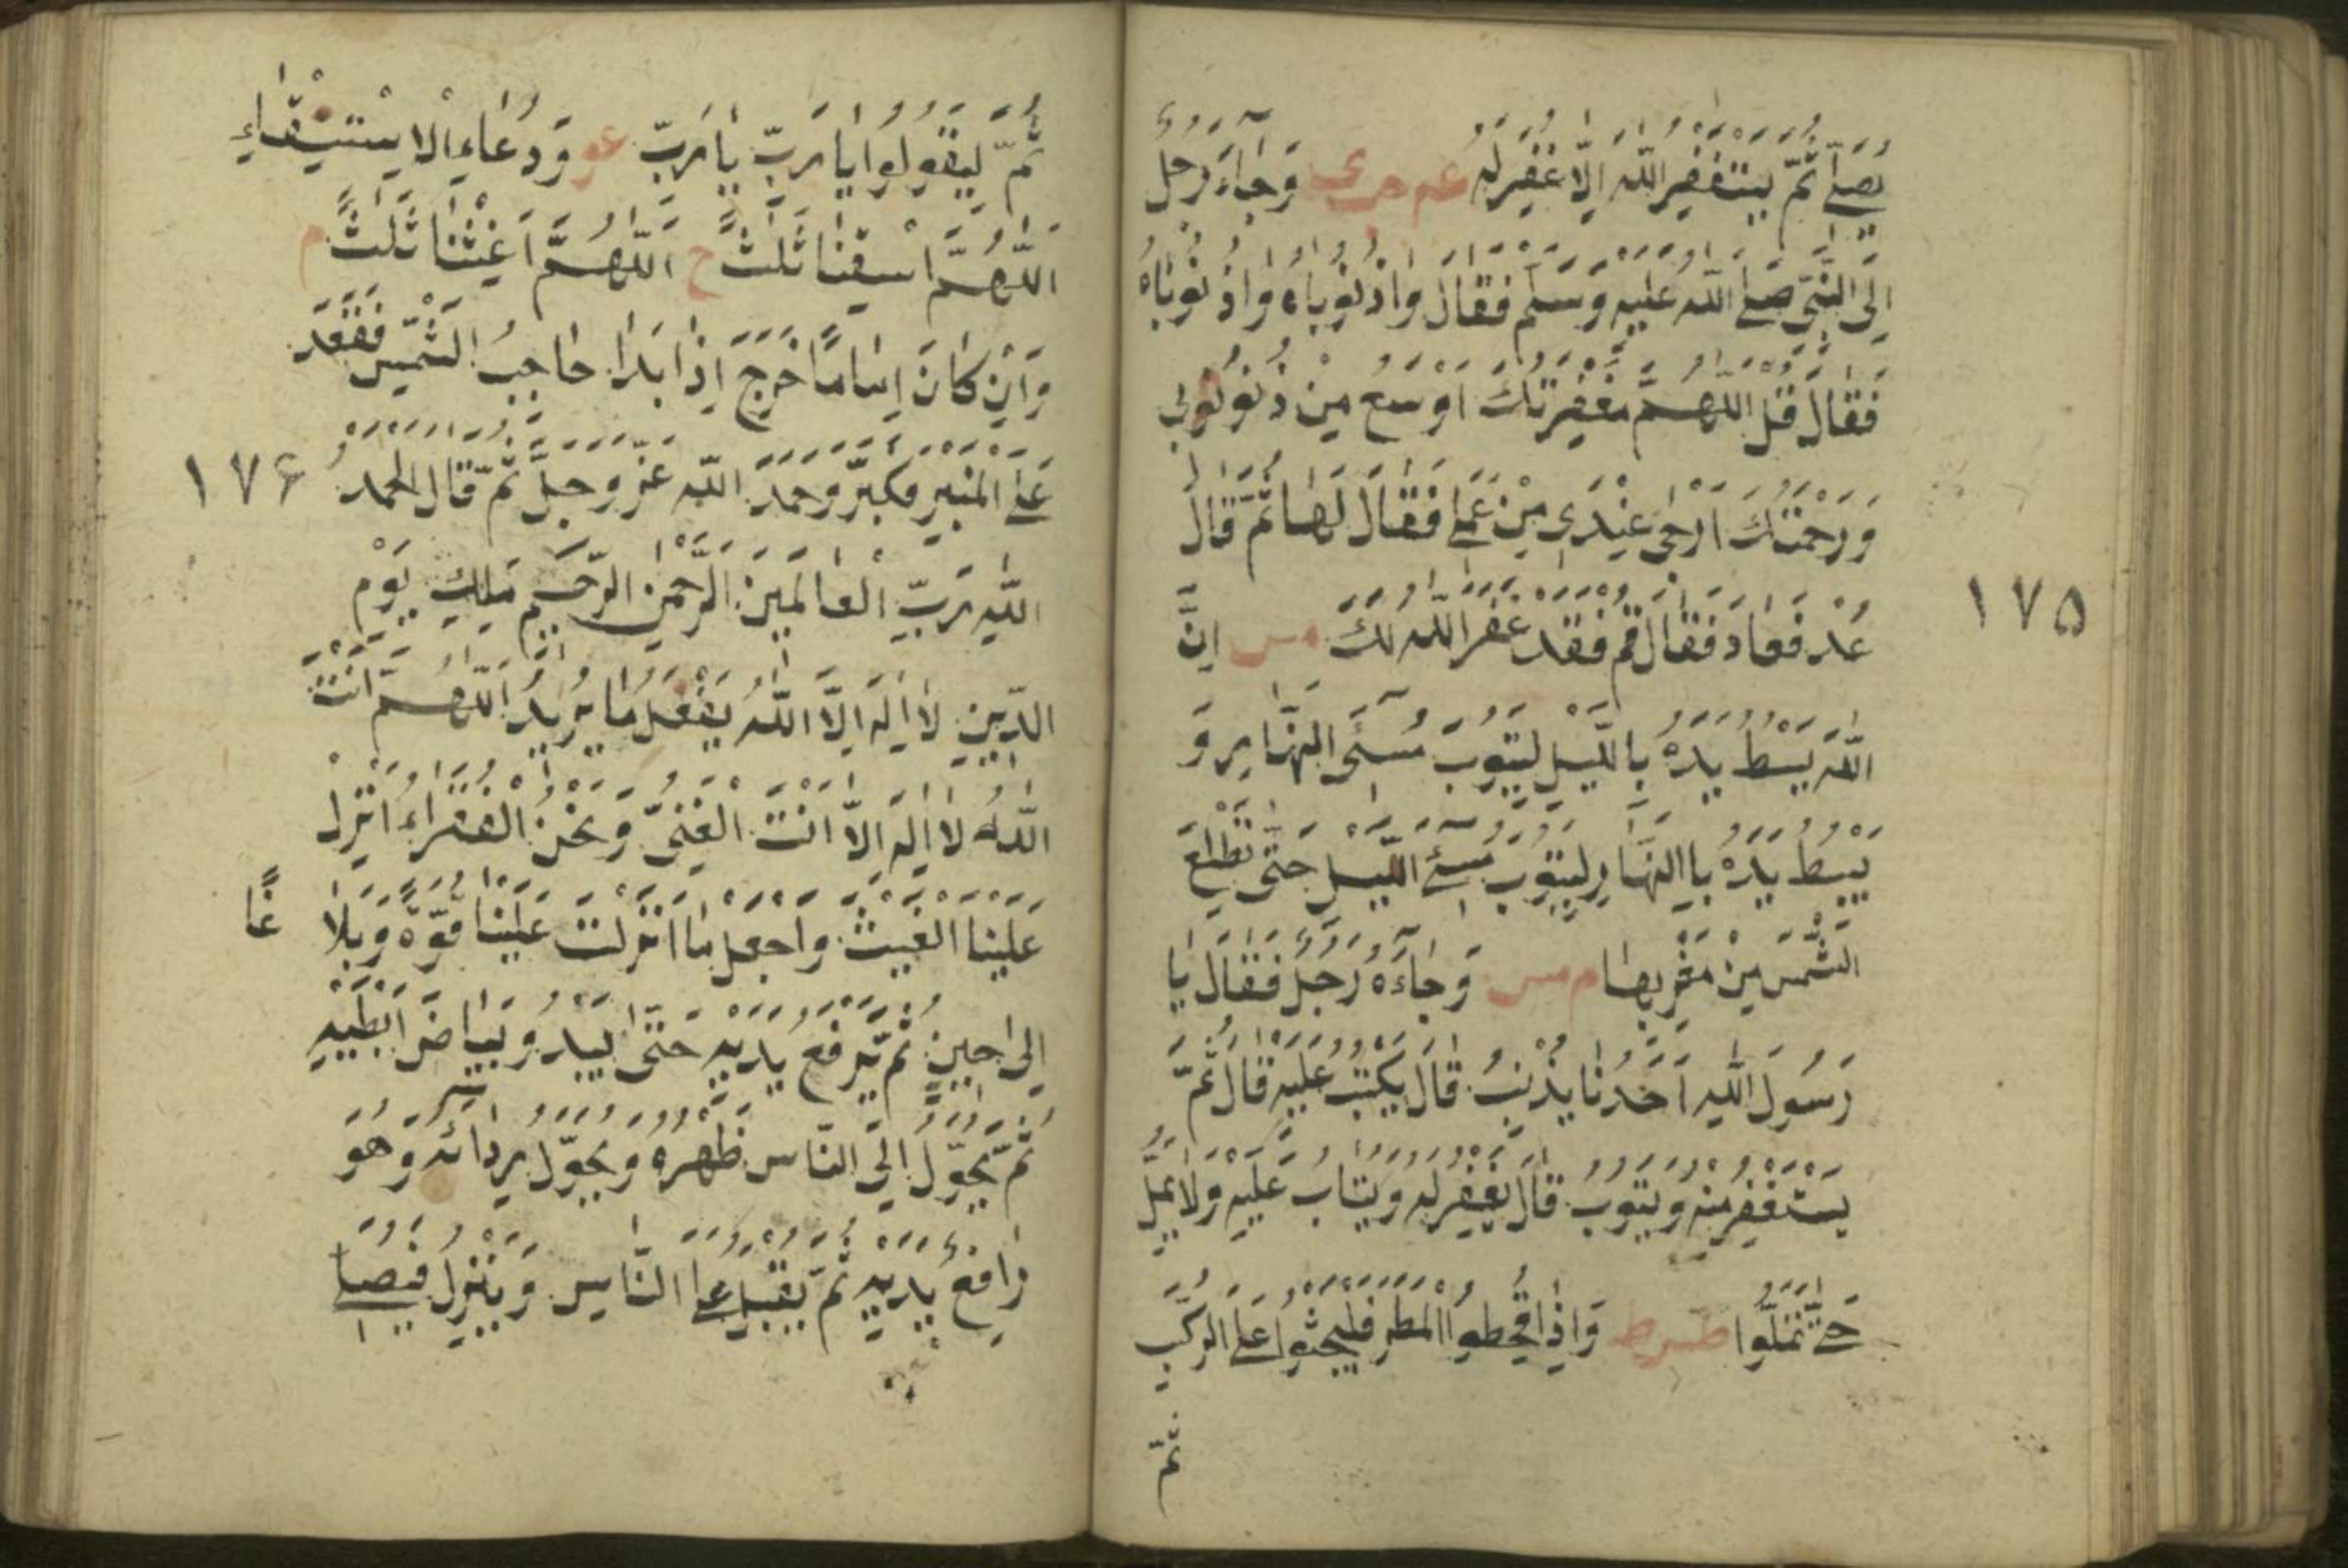 يُصَلِّي ثُمَّ يَسْتَغْفِرُ اللّٰهَ اِلَّا غُفِرَ لَهُ عه حب ى وَجَآءَ رَجُلٌ
اِلَى النَّبِيِّ صَلَّى اللّٰهُ عَلَيْهِ وَسَلَّمَ فَقَالَ وَاذُنُوبَاهُ وَاذُنُوبَاهُ
فَقَالَ قُلِ اللّٰهُمَّ مَغْفِرَتُكَ اَوْسَعُ مِنْ ذُنُوبِي
وَرَحْمَتُكَ اَرْجٰى عِنْدِي مِنْ عَمَلِي فَقَالَهَا ثُمَّ قَالَ
عُدْ فَعَادَ فَقَالَ قُمْ فَقَدْ غَفَرَ اللّٰهُ لَكَ مس اِنَّ
١٧٥
اللّٰهَ يَبْسُطُ يَدَهُ بِاللَّيْلِ لِيَتُوبَ مُسِئُ النَّهَارِ وَ
يَبْسُطُ يَدَهُ بِالنَّهَارِ لِيَتُوبَ مُسِئُ اللَّيْلِ حَتّٰى تَطْلُعَ
الشَّمْسُ مِنْ مَغْرِبِهَا م مس وَجَآءَهُ رَجُلٌ فَقَالَ يَا
رَسُولَ اللّٰهِ اَحَدُنَا يُذْنِبُ قَالَ يُكْتَبُ عَلَيْهِ قَالَ ثُمَّ
يَسْتَغْفِرُ مِنْهُ وَيَتُوبُ قَالَ يُغْفَرُ لَهُ وَيُتَابُ عَلَيْهِ وَلَا يَمَلُّ
حَتّٰى تَمَلُّوا طس ط وَاِذَا قُحِطُوا الْمَطَرَ فَلْيَجْثُوا عَلَى الرُّكَبِ
ثُمَّ
ثُمَّ لِيَقُولُوا يَا رَبِّ يَا رَبِّ عو وَدُعَاءِ الْاِسْتِسْقَاءِ
اللّٰهُمَّ اسْقِنَا ثَلٰثًا خ اَللّٰهُمَّ اَغِثْنَا ثَلٰثًا م
وَاِنْ كَانَ اِمَامًا خَرَجَ اِذَا بَدَا حَاجِبُ الشَّمْسِ فَقَعَدَ
عَلَى الْمِنْبَرِ فَكَبَّرَ وَحَمِدَ اللّٰهَ عَزَّ وَجَلَّ ثُمَّ قَالَ الْحَمْدُ
١٧٦
لِلّٰهِ رَبِّ الْعَالَمِينَ الرَّحْمٰنِ الرَّحِيمِ مَلِكِ يَوْمِ
الدِّينِ لَا اِلٰهَ اِلَّا اللّٰهُ يَفْعَلُ مَا يُرِيدُ اَللّٰهُمَّ اَنْتَ
اللّٰهُ لَا اِلٰهَ اِلَّا اَنْتَ الْغَنِيُّ وَنَحْنُ الْفُقَرَاءُ اَنْزِلْ
عَلَيْنَا الْغَيْثَ وَاجْعَلْ مَا اَنْزَلْتَ عَلَيْنَا قُوَّةً وَبَلَا غًا
اِلٰى حِينٍ ثُمَّ يَرْفَعُ يَدَيْهِ حَتّٰى يَبْدُوَ بَيَاضُ اِبْطَيْهِ
ثُمَّ يُحَوِّلُ اِلَى النَّاسِ ظَهْرَهُ وَيُحَوِّلُ رِدَائَهُ وَهُوَ
رَافِعٌ يَدَيْهِ ثُمَّ يُقْبِلُ عَلَى النَّاسِ وَيَنْزِلُ فَيُصَلِّي